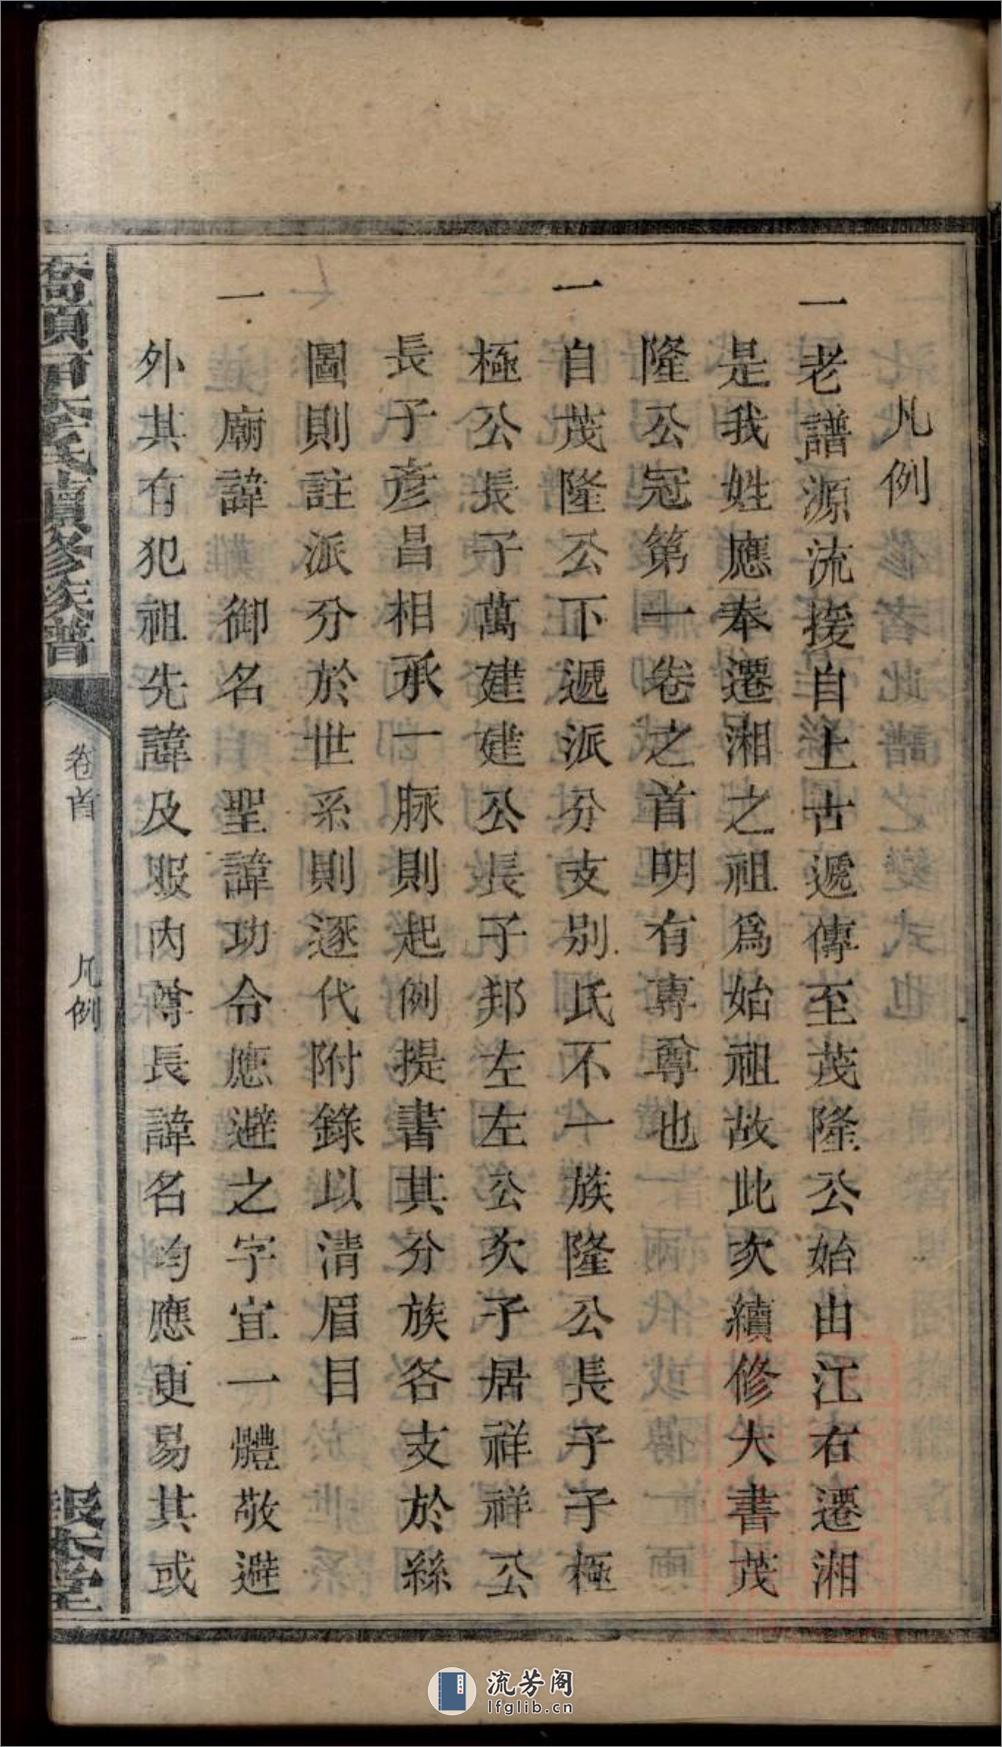 凡例
一老譜源流援自上古遞傳至茂隆公始由江右遷湘
是我姓應奉遷湘之祖爲始祖故此次續修大書茂
隆公冠第一卷之首明有專尊也
一自茂隆公下遞派分支別氏不一族隆公長子子極
極公長子萬建建公長子邦左左公次子居祥祥公
長子彥昌相承一脉則起例提書其分族各支於絲
圖則註派分於世系則逐代附錄以清眉目
一廟諱御名聖諱功令應避之字宜一體敬避
外其有犯祖先諱及服內尊長諱名均應更易其或
李氏續修族譜
卷首
凡例
一
報本堂
流芳阁
lfglib.cn